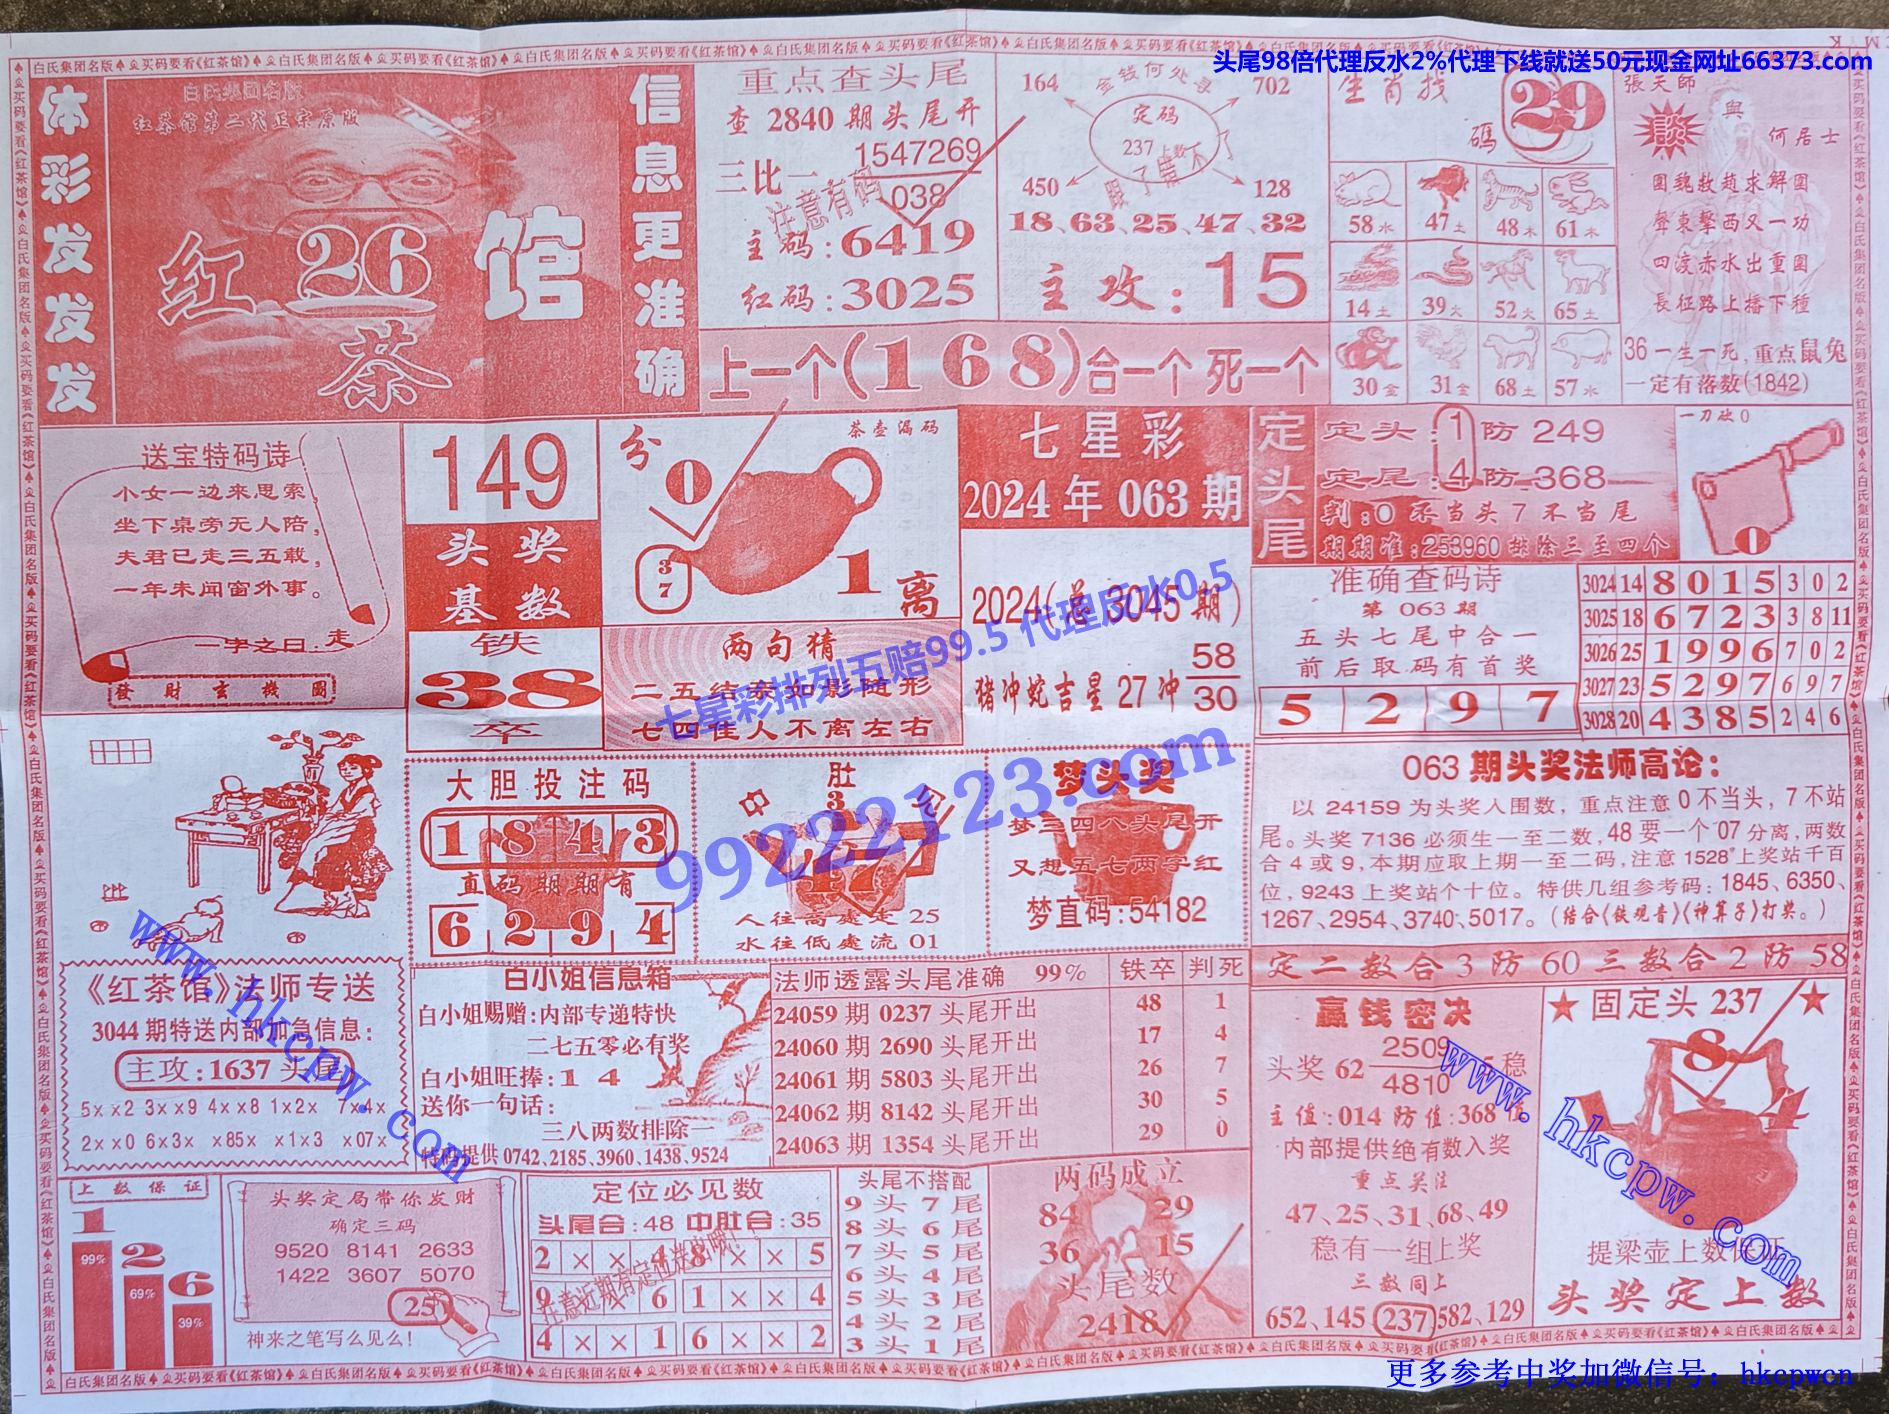 头尾98倍代理反水2%代理下线就送50元现金网址66373.com
体彩发发发
白氏集团名版
红茶馆第二代正宗原版
红 26 馆
茶
信息更准确
重点查头尾
查 2840 期头尾开
三比一 1547269
038
注意有码
主码:6419
红码:3025
164 金钱何处寻 702
定码
237 上数
450 128
18、63、25、47、32
主攻:15
上一个(168)合一个 死一个
生肖找
碼 29
58水 47土 48木 61木
14土 39火 52火 65土
30金 31金 68土 57水
張天師
談 與
何居士
圍魏救趙求解圍
聲東擊西又一功
四渡赤水出重圍
長征路上播下種
36 一生一死,重点鼠兔
一定有落数(1842)
送宝特码诗
小女一边来思索,
坐下桌旁无人陪,
夫君已走三五載,
一年未闻窗外事。
一字之曰:走
發財玄機圖
149
头奖
基数
铁
38
卒
茶壶漏码
分 0
37
1 离
两句猜
二五结泰如影随形
七四佳人不离左右
七星彩
2024年063期
2024(总3045期)
猪冲蛇吉星 27 冲 58
30
七星彩排列五赔99.5 代理反水0.5
99222123.com
定头尾
定头:1 防 249
定尾:4 防 368
判:0 不当头 7 不当尾
期期准:253960 排除三至四个
一刀砍 0
0
准确查码诗
第 063 期
五头七尾中合一
前后取码有首奖
5 2 9 7
3024 14 8 0 1 5 3 0 2
3025 18 6 7 2 3 3 8 11
3026 25 1 9 9 6 7 0 2
3027 23 5 2 9 7 6 9 7
3028 20 4 3 8 5 2 4 6
大胆投注码
1 8 4 3
直码期期有
6 2 9 4
肚
3
17
人往高處走 25
水往低處流 01
梦头奖
梦三四八头尾开
又想五七两字红
梦直码:54182
063 期头奖法师高论:
以 24159 为头奖入围数,重点注意 0 不当头,7 不站
尾。头奖 7136 必须生一至二数,48 要一个 07 分离,两数
合 4 或 9,本期应取上期一至二码,注意 1528 上奖站千百
位,9243 上奖站个十位。特供几组参考码:1845、6350、
1267、2954、3740、5017。(结合《铁观音》《神算子》打奖。)
定二数合 3 防 60 三数合 2 防 58
《红茶馆》法师专送
3044 期特送内部加急信息:
主攻:1637 头尾
5××2 3××9 4××8 1×2× 7×4×
2××0 6×3× ×85× ×1×3 ×07×
白小姐信息箱
白小姐赐赠:内部专递特快
二七五零必有奖
白小姐旺捧:1 4
送你一句话:
三八两数排除一
特码提供 0742、2185、3960、1438、9524
法师透露头尾准确 99% 铁卒 判死
24059 期 0237 头尾开出 48 1
24060 期 2690 头尾开出 17 4
24061 期 5803 头尾开出 26 7
24062 期 8142 头尾开出 30 5
24063 期 1354 头尾开出 29 0
赢钱密决
头奖 62 2509
4810 5 稳
主值:014 防值:368
内部提供绝有数入奖
重点关注
47、25、31、68、49
稳有一组上奖
三数同上
652、145 237 582、129
★固定头 237★
8
4
提梁壶上数保证
头奖定上数
上数保证
1 2 6
99% 69% 39%
头奖定局带你发财
确定三码
9520 8141 2633
1422 3607 5070
25
神来之笔写么见么!
定位必见数
头尾合:48 中肚合:35
2 × × 4 8 × × 5
9 × × 6 1 × × 4
4 × × 1 6 × × 2
头尾不搭配
9 头 7 尾
8 头 6 尾
7 头 5 尾
6 头 4 尾
5 头 3 尾
4 头 2 尾
3 头 1 尾
两码成立
84 29
36 15
头尾数
2418
www.hkcpw.com
www.hkcpw.com
更多参考中奖加微信号:hkcpwcn